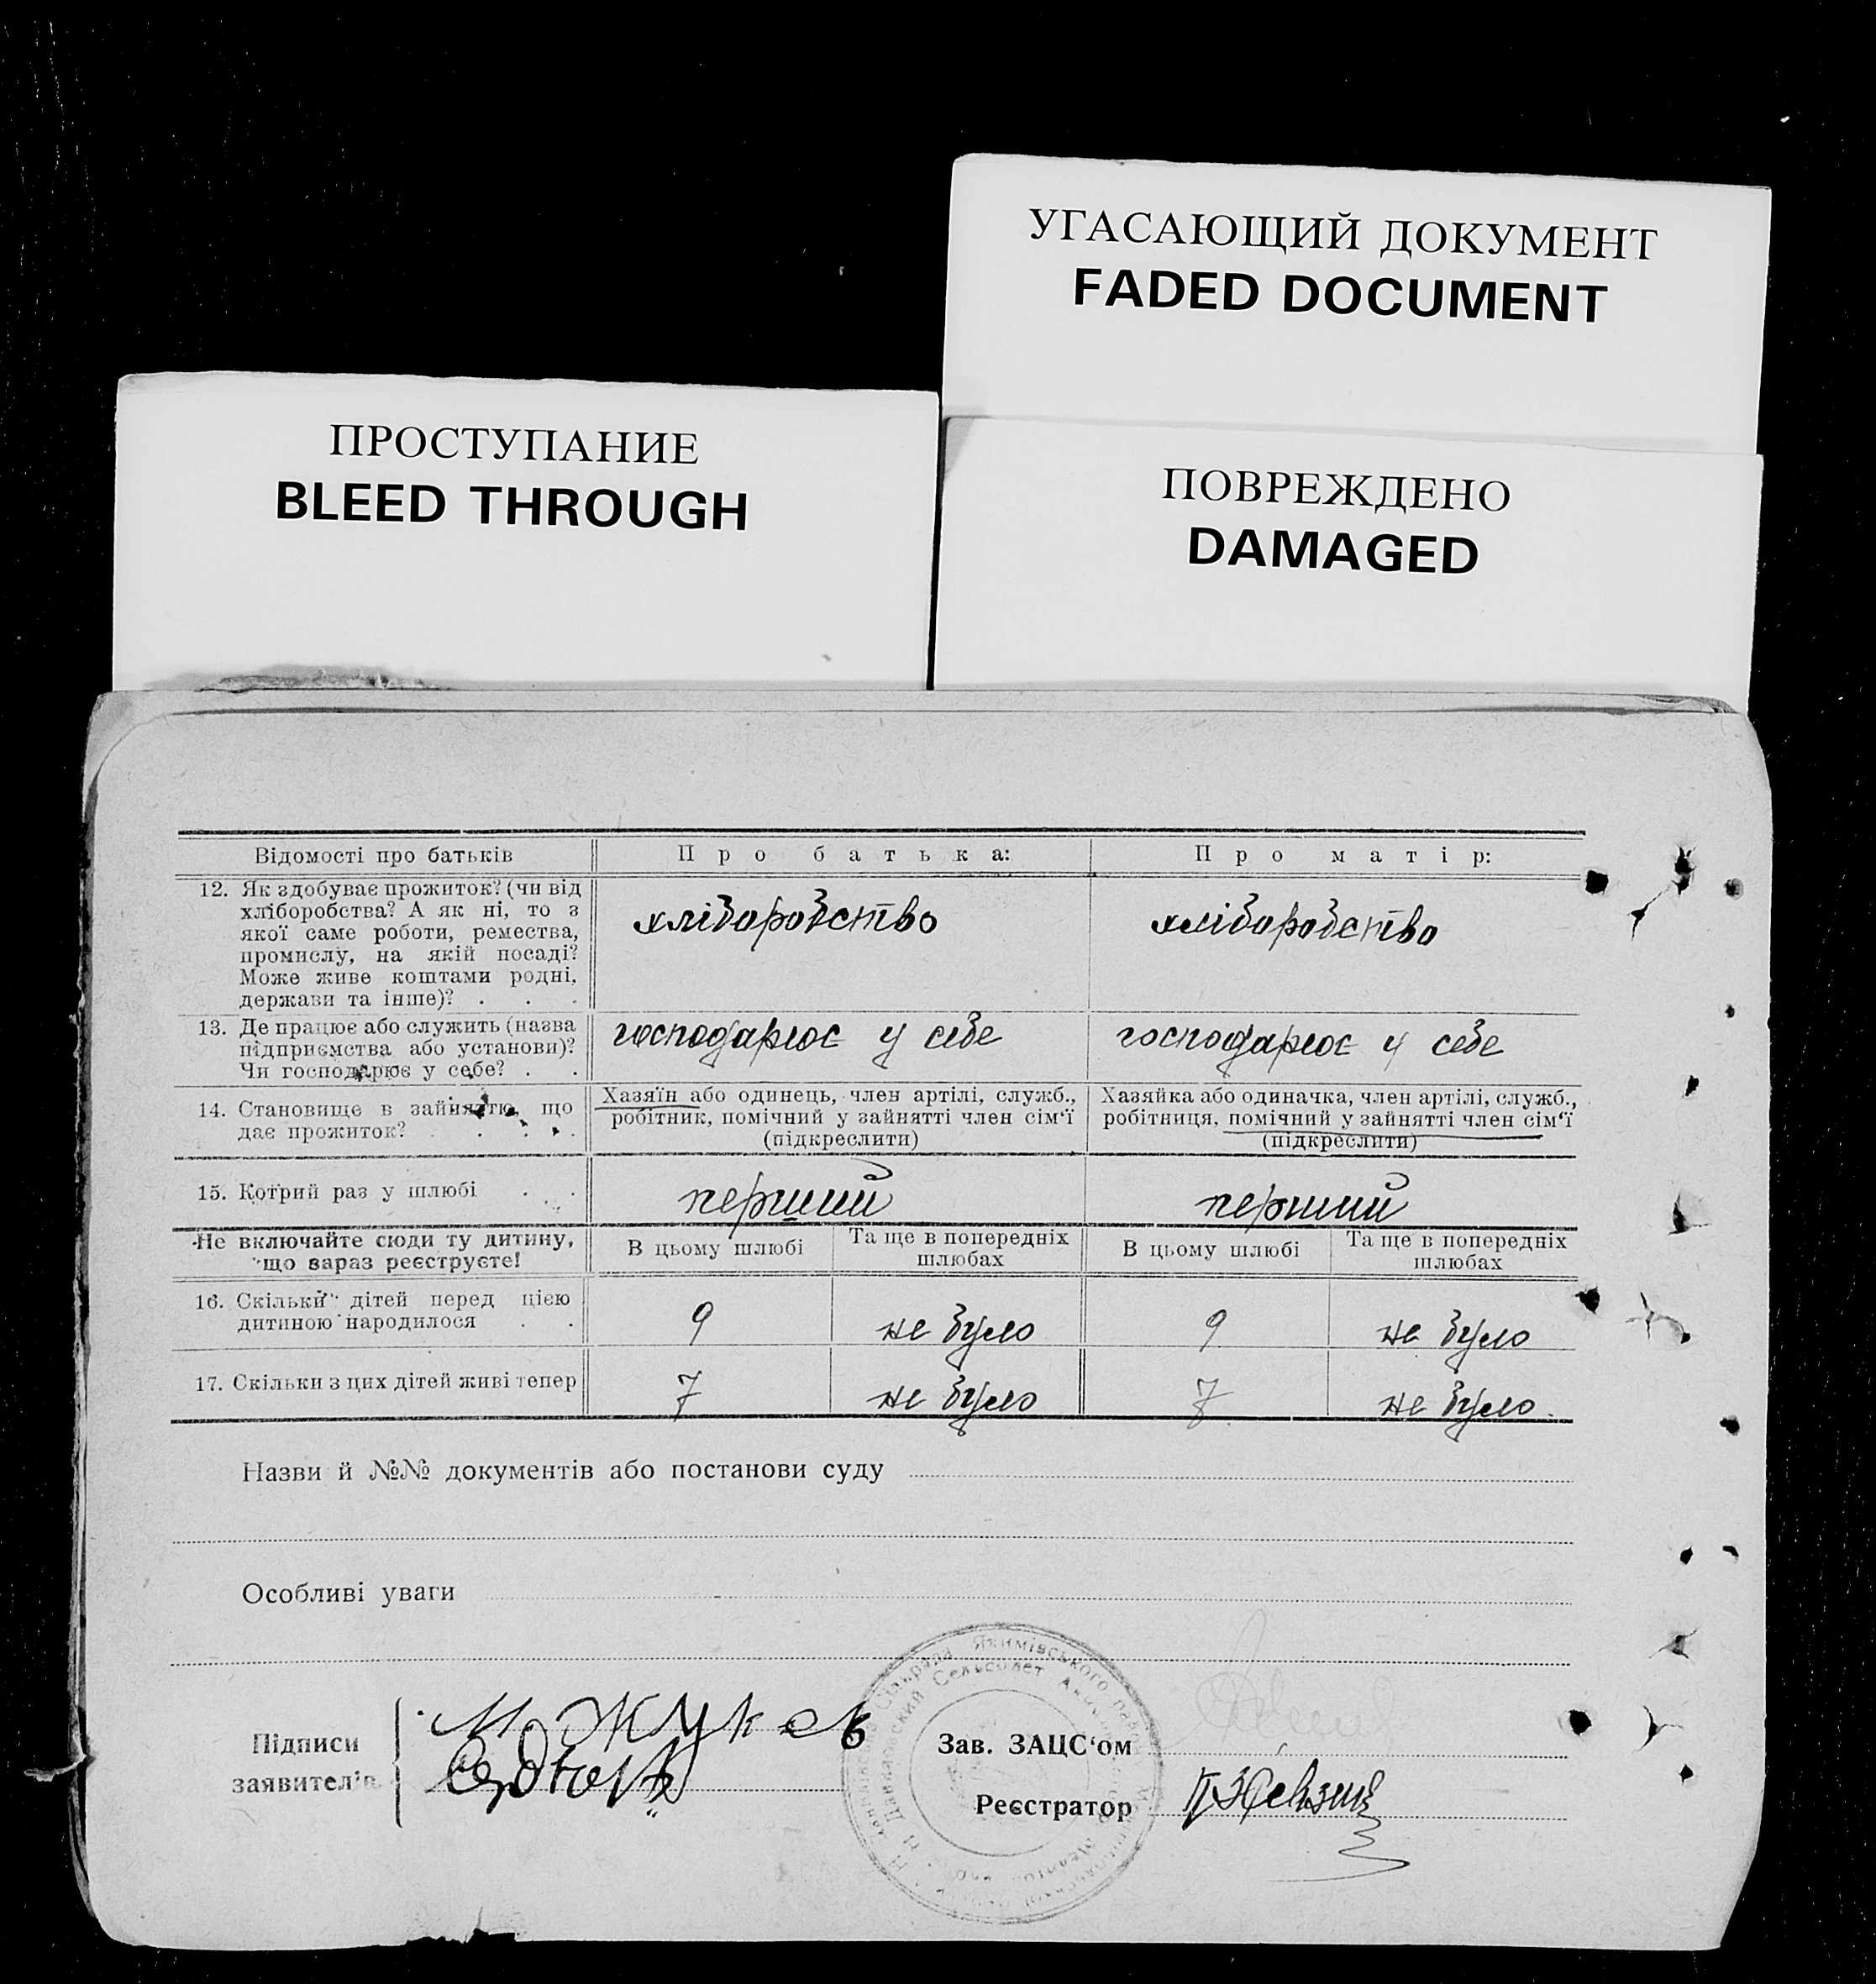 УГАСАЮЩИЙ ДОКУМЕНТ
FADED DOCUMENT
ПРОСТУПАНИЕ
BLEED THROUGH
ПОВРЕЖДЕНО
DAMAGED
Відомості про батьків
Про батька:
Про матір:
12. Як здобуває прожиток? (чи від
хліборобства? А як ні, то з
якої саме роботи, ремества,
промислу, на якій посаді?
Може живе коштами родні,
держави та інше)? . . .
хліборобство
хліборобство
13. Де працює або служить (назва
підприємства або установи)?
Чи господарює у себе? . .
господарює у себе
господарює у себе
14. Становище в зайняттю, що
дає прожиток? . . . .
Хазяїн або одинець, член артілі, служб.,
робітник, помічний у зайнятті член сім'ї
(підкреслити)
Хазяйка або одиначка, член артілі, служб.,
робітниця, помічний у зайнятті член сім'ї
(підкреслити)
15. Котрий раз у шлюбі . .
перший
перший
Не включайте сюди ту дитину,
що зараз реєструєте!
В цьому шлюбі
Та ще в попередніх
шлюбах
В цьому шлюбі
Та ще в попередніх
шлюбах
16. Скільки дітей перед цією
дитиною народилося . .
9
не було
9
не було
17. Скільки з цих дітей живі тепер
7
не було
7
не було
Назви й №№ документів або постанови суду
Особливі уваги
Підписи
заявителів
М. Жуков
Зав. ЗАЦС'ом
Реєстратор
Якимівського
Сельсовет